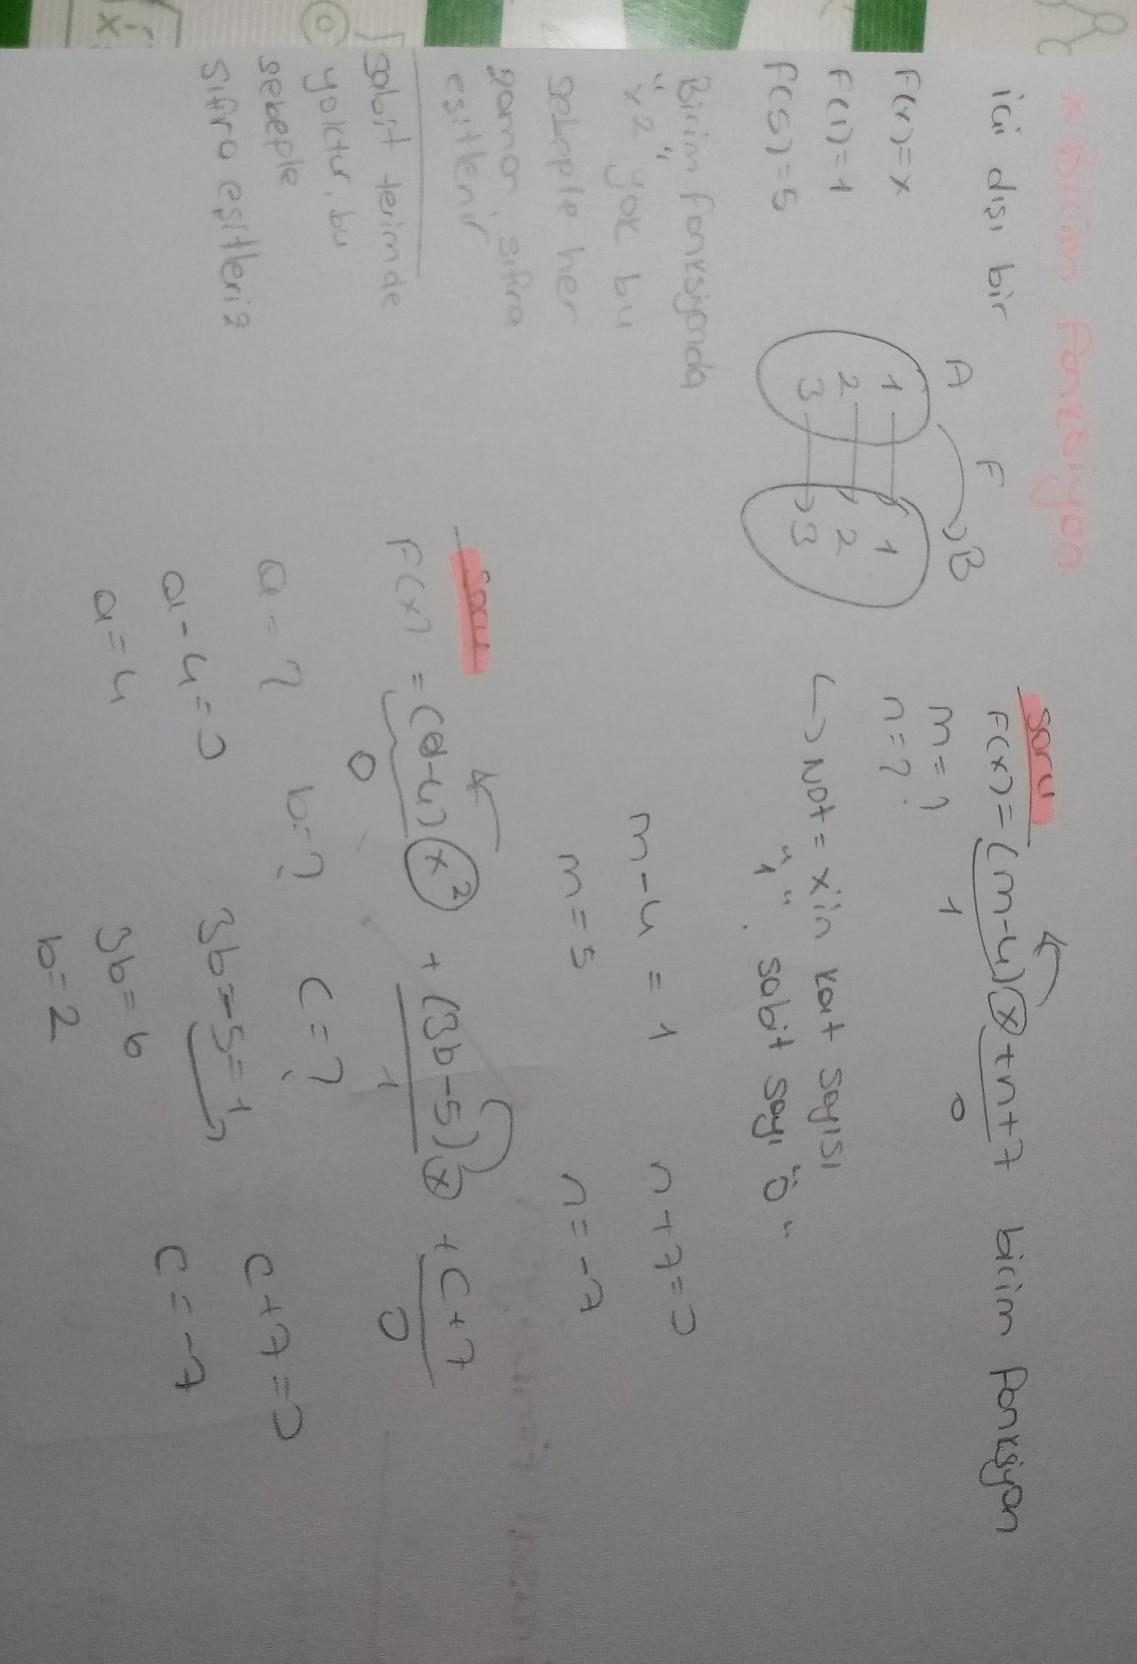 x Birim Fonksiyon
içi dışı bir
F(x)=x
F(1)=1
F(5)=5
A F B
1 1
2 2
3 3
Birim fonksiyonda
"x2" yok bu
sebeple her
zaman sıfıra
eşitlenir
sabit terimde
yoktur, bu
sebeple
sıfıra eşitleriz
Soru
F(x)=(m-4)x+n+7 birim fonksiyon
1 0
m=?
n=?
↳ Not = x'in kat sayısı
"1" sabit sayı "0"
m-4=1 n+7=0
m=5 n=-7
Soru
F(x)=(a-4)x² + (3b-5)x + c+7
0 1 0
a=? b=? c=?
a-4=0 3b-5=1 c+7=0
a=4 3b=6 c=-7
b=2